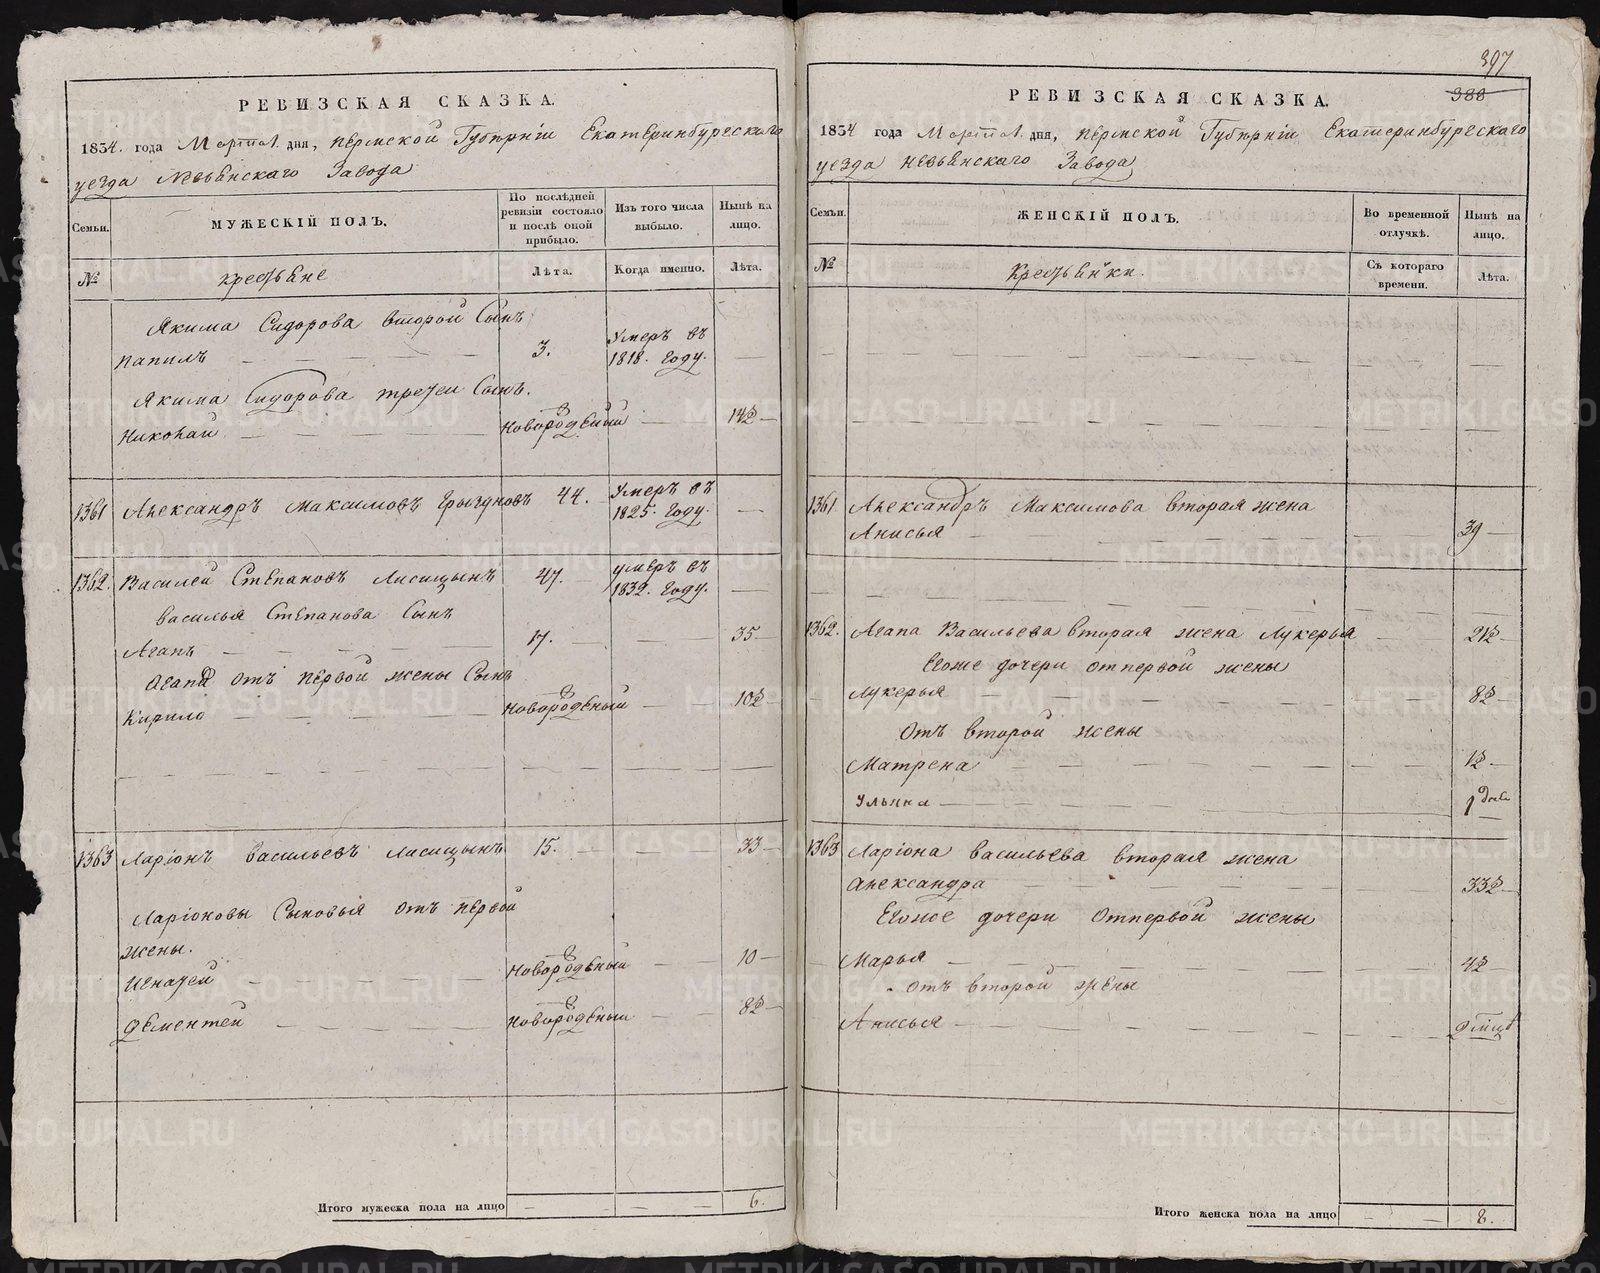 РЕВИЗСКАЯ СКАЗКА.
1834. года Марта 1. дня, Пермской Губерніи Екатеринбургскаго
уезда Невьянскаго Завода
Семьи.
МУЖЕСКІЙ ПОЛЪ.
По послѣдней ревизіи состояло и послѣ оной прибыло.
Изъ того числа выбыло.
Нынѣ на лицо.
№
крестьяне
Лѣта.
Когда именно.
Лѣта.
Якима Сидорова второй Сынъ
Папилъ — 3. Умеръ въ 1818. Году. —
Якима Сидорова третей Сынъ.
Николай — Новорожденный — 14½ —
1361 Александръ Максимовъ Грыздновъ 44. Умеръ въ 1825. Году. —
1362. Василей Степановъ Лисицынъ 47. умеръ въ 1832. Году. —
Василья Степанова Сынъ
Агапъ — 17. — 35 —
Агапа отъ первой жены Сынъ
Кирило — Новорожденный — 10½ —
1363 Ларіонъ Васильевъ Лисицынъ 15. — 33 —
Ларіоновы Сыновья отъ первой
жены.
Игнатей — Новорожденный — 10 —
Дементей — Новорожденный — 8½ —
Итого мужеска пола на лицо — 6.
397
388
РЕВИЗСКАЯ СКАЗКА.
1834 года Марта 1. дня, Пермской Губерніи Екатеринбургскаго
уезда Невьянскаго Завода
Семьи.
ЖЕНСКІЙ ПОЛЪ.
Во временной отлучкѣ.
Нынѣ на лицо.
№
Крестьянки.
Съ котораго времени.
Лѣта.
1361 Александръ Максимова вторая жена
Анисья — 39 —
1362. Агапа Васильева вторая жена Лукерья — 21½ —
Егоже дочери отпервой жены
Лукерья — 8½ —
Отъ второй жены
Матрена — 1½ —
Ульяна — 1 дней
1363 Ларіона Васильева вторая жена
Александра — 33½ —
Егоже дочери Отпервой жены
Марья — 4½ —
отъ второй жены
Анисья —
Итого женска пола на лицо — 8.
METRIKI.GASO-URAL.RU